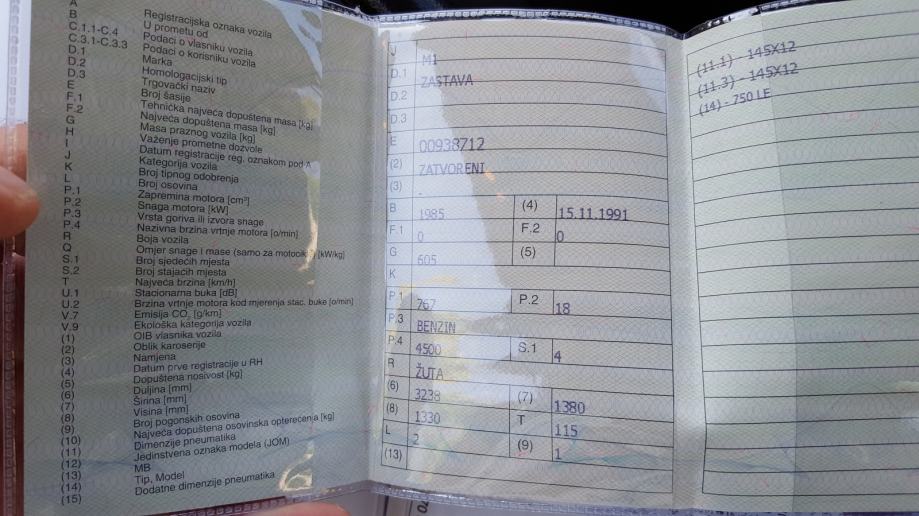 A
B Registracijska oznaka vozila
C.1.1-C.4 U prometu od
C.3.1-C.3.3 Podaci o vlasniku vozila
D.1 Podaci o korisniku vozila
D.2 Marka
D.3 Homologacijski tip
E Trgovački naziv
F.1 Broj šasije
F.2 Tehnička najveća dopuštena masa [kg]
G Najveća dopuštena masa [kg]
H Masa praznog vozila [kg]
I Važenje prometne dozvole
J Datum registracije reg. oznakom pod A
K Kategorija vozila
L Broj tipnog odobrenja
P.1 Broj osovina
P.2 Zapremina motora [cm³]
P.3 Snaga motora [kW]
P.4 Vrsta goriva ili izvora snage
R Nazivna brzina vrtnje motora [o/min]
Q Boja vozila
S.1 Omjer snage i mase (samo za motocikl) [kW/kg]
S.2 Broj sjedećih mjesta
T Broj stajaćih mjesta
U.1 Najveća brzina [km/h]
U.2 Stacionarna buka [dB]
V.7 Brzina vrtnje motora kod mjerenja stac. buke [o/min]
V.9 Emisija CO₂ [g/km]
(1) Ekološka kategorija vozila
(2) OIB vlasnika vozila
(3) Oblik karoserije
(4) Namjena
(5) Datum prve registracije u RH
(6) Dopuštena nosivost [kg]
(7) Duljina [mm]
(8) Širina [mm]
(9) Visina [mm]
(10) Broj pogonskih osovina
(11) Najveća dopuštena osovinska opterećenja [kg]
(12) Dimenzije pneumatika
(13) Jedinstvena oznaka modela (JOM)
(14) MB
(15) Tip, Model
Dodatne dimenzije pneumatika
J M1
D.1 ZASTAVA
D.2
D.3
E 00938712
(2) ZATVORENI
(3) -
B 1985 (4) 15.11.1991
F.1 0 F.2 0
G 605 (5)
K
P.1 767 P.2 18
P.3 BENZIN
P.4 4500 S.1 4
R ŽUTA
(6) 3238 (7) 1380
(8) 1330 T 115
L 2 (9) 1
(13)
(11.1) - 145X12
(11.3) - 145X12
(14) - 750 LE